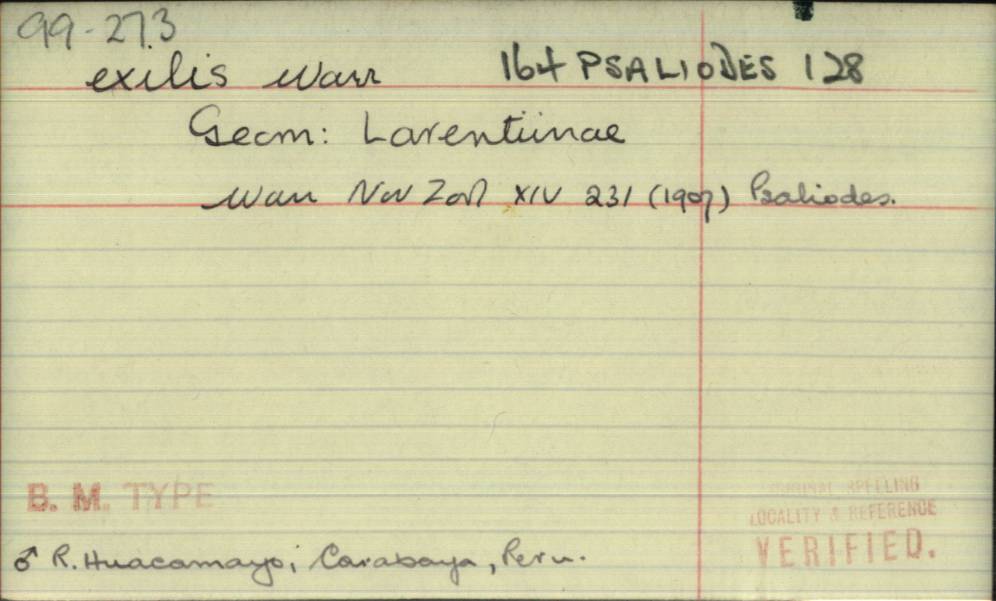 99-273
exilis Warr 164 PSALIODES 128
Geom: Larentiinae
Warr Nov Zool XIV 231 (1907) Psaliodes.
B. M. TYPE
ORIGINAL SPELLING
LOCALITY & REFERENCE
VERIFIED.
♂ R. Huacamayo; Carabaya, Peru.